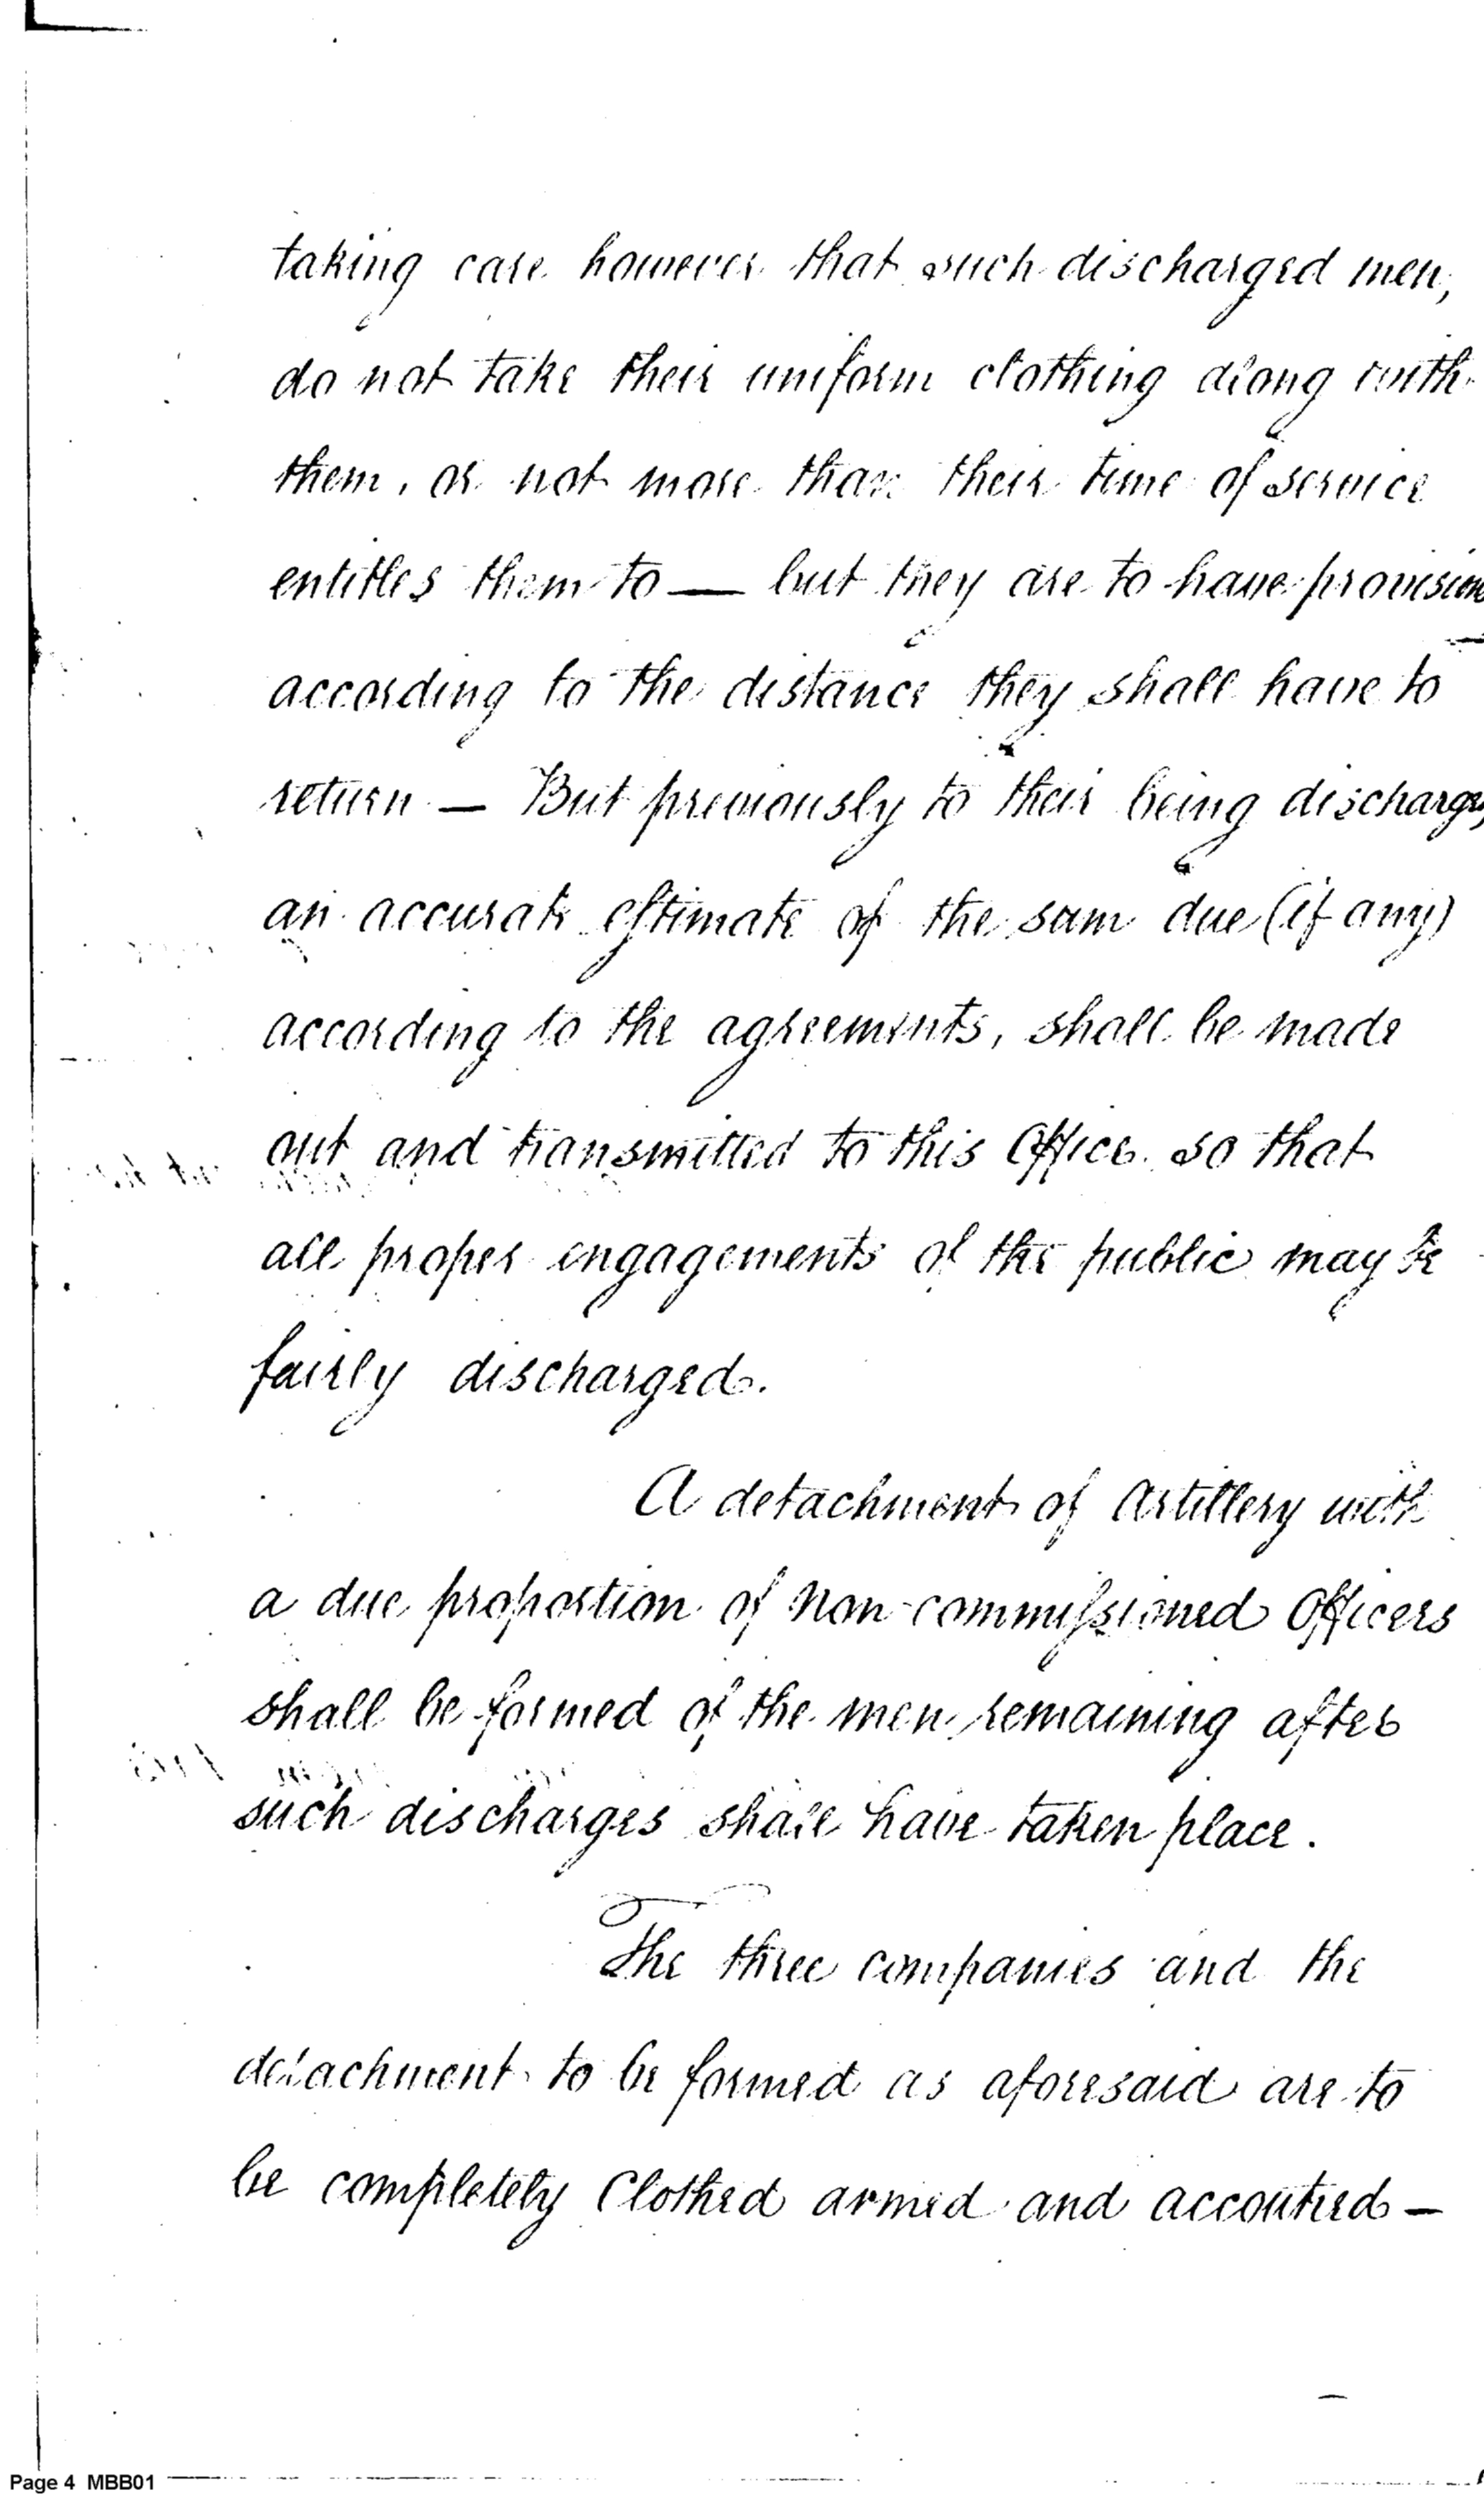 taking care however that such discharged men,
do not take their uniform clothing along with
them, or not more than their time of service
entitles them to — but they are to have provision
according to the distance they shall have to
return — But previously to their being discharged
an accurate estimate of the sum due (if any)
according to the agreements, shall be made
out and transmitted to this Office so that
all proper engagements of the public may be
fairly discharged.
A detachment of Artillery with
a due proportion of non-commissioned Officers
shall be formed of the men remaining after
such discharges shall have taken place.
The three companies and the
detachment to be formed as aforesaid are to
be completely Clothed armed and accoutred —
Page 4 MBB01